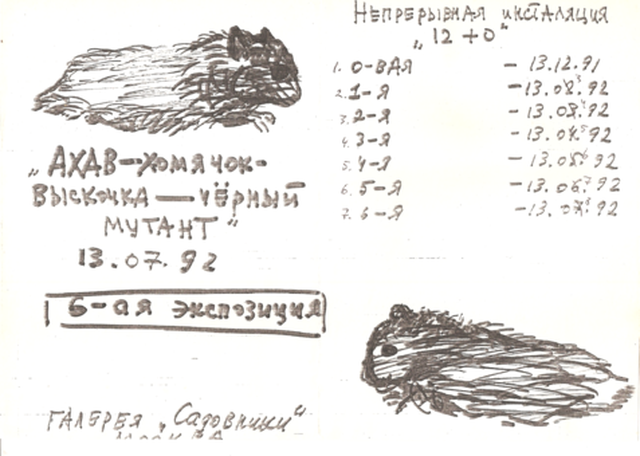 „АХАВ-хомячок-
выскочка — чёрный
мутант"
13.07.92
6-ая экспозиция
ГАЛЕРЕЯ „Садовники"
МОСКВА
Непрерывная инсталяция
„12+0"
1. 0-вая - 13.12.91
2. 1-я -13. .92
3. 2-я -13. .92
4. 3-я -13. .92
5. 4-я -13. .92
6. 5-я -13. .92
7. 6-я -13. .92